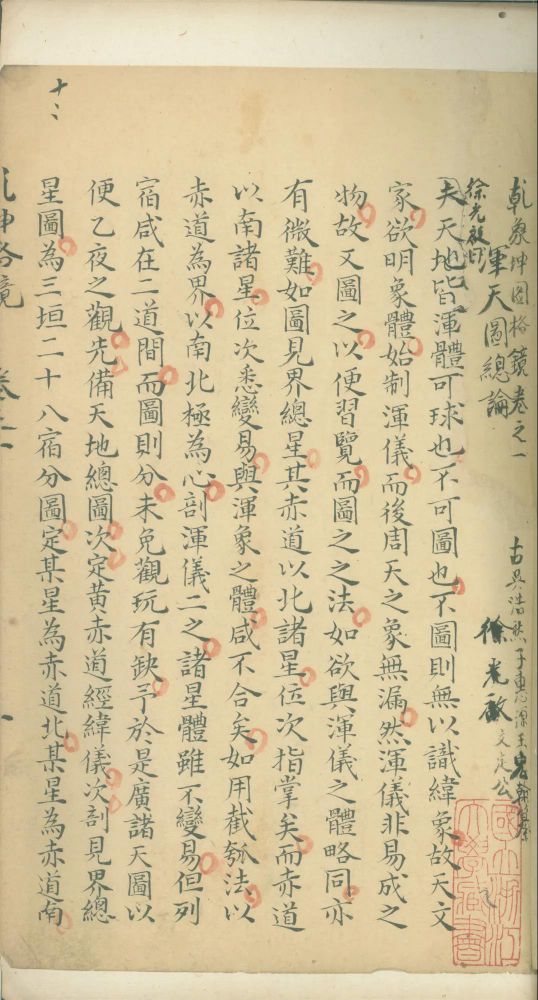 乾象坤圖格鏡卷之一
古吳浩然子惠源王宏翰纂
渾天圖總論
徐光啟 文定公
徐光啟曰
夫天地皆渾體可球也不可圖也不圖則無以識緯象故天文
家欲明象體始制渾儀而後周天之象無漏然渾儀非易成之
物故又圖之以便習覽而圖之之法如欲與渾儀之體略同亦
有微難如圖見界總星其赤道以北諸星位次指掌矣而赤道
以南諸星位次悉變易與渾象之體咸不合矣如用截瓠法以
赤道為界以南北極為心剖渾儀二之諸星體雖不變易但列
宿咸在二道間而圖則分未免觀玩有缺予於是廣諸天圖以
便乙夜之觀先備天地總圖次定黃赤道經緯儀次剖見界總
星圖為三垣二十八宿分圖定某星為赤道北某星為赤道南
國立浙江
大學圖書